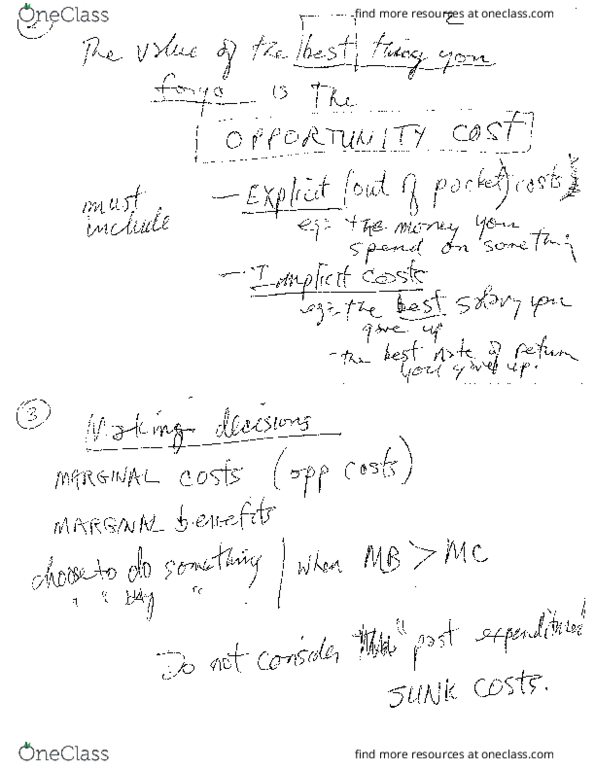 OneClass
find more resources at oneclass.com
2
The value of the best thing you
forgo is The
OPPORTUNITY COST
must include
— Explicit (out of pocket) costs
eg: the money you
spend on something
— Implicit costs
eg: the best salary you
give up
- the best rate of return
you give up.
3
Making decisions
MARGINAL COSTS (opp costs)
MARGINAL benefits
choose to do something | when MB > MC
" " buy "
Do not consider "past expenditures"
SUNK COSTS.
OneClass
find more resources at oneclass.com